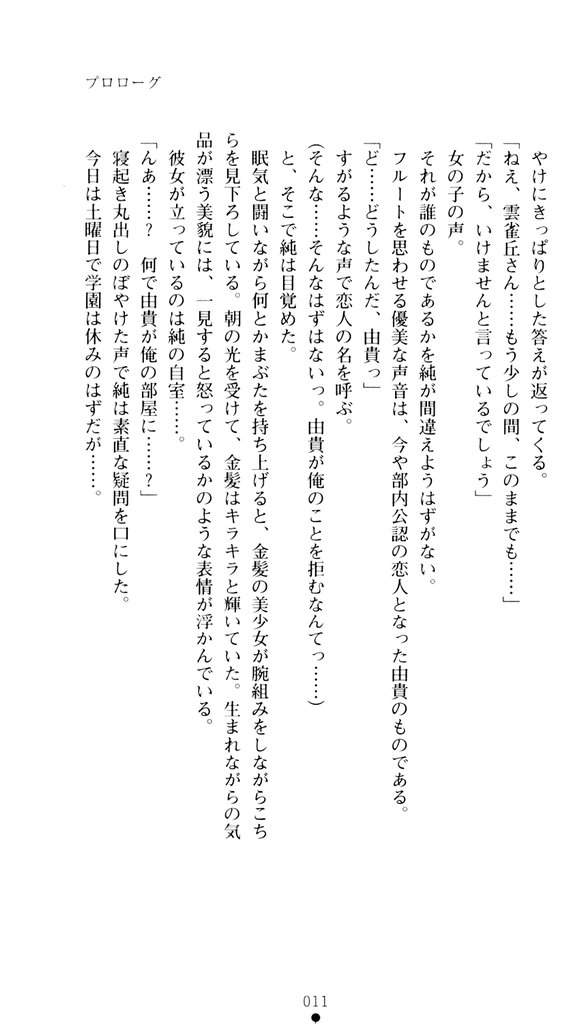 プロローグ
やけにきっぱりとした答えが返ってくる。
「ねえ、雲雀丘さん……もう少しの間、このままでも……」
「だから、いけませんと言っているでしょう」
女の子の声。
それが誰のものであるかを純が間違えようはずがない。
フルートを思わせる優美な声音は、今や部内公認の恋人となった由貴のものである。
「ど……どうしたんだ、由貴っ」
すがるような声で恋人の名を呼ぶ。
(そんな……そんなはずはないっ。由貴が俺のことを拒むなんてっ……)
と、そこで純は目覚めた。
眠気と闘いながら何とかまぶたを持ち上げると、金髪の美少女が腕組みをしながらこち
らを見下ろしている。朝の光を受けて、金髪はキラキラと輝いていた。生まれながらの気
品が漂う美貌には、一見すると怒っているかのような表情が浮かんでいる。
彼女が立っているのは純の自室……。
「んあ……?　何で由貴が俺の部屋に……?」
寝起き丸出しのぼやけた声で純は素直な疑問を口にした。
今日は土曜日で学園は休みのはずだが……。
011